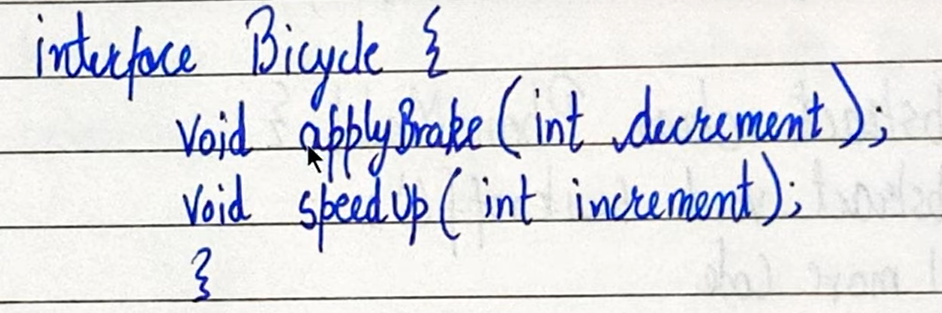 interface Bicycle {
void applyBrake(int decrement);
void speedUp(int increment);
}